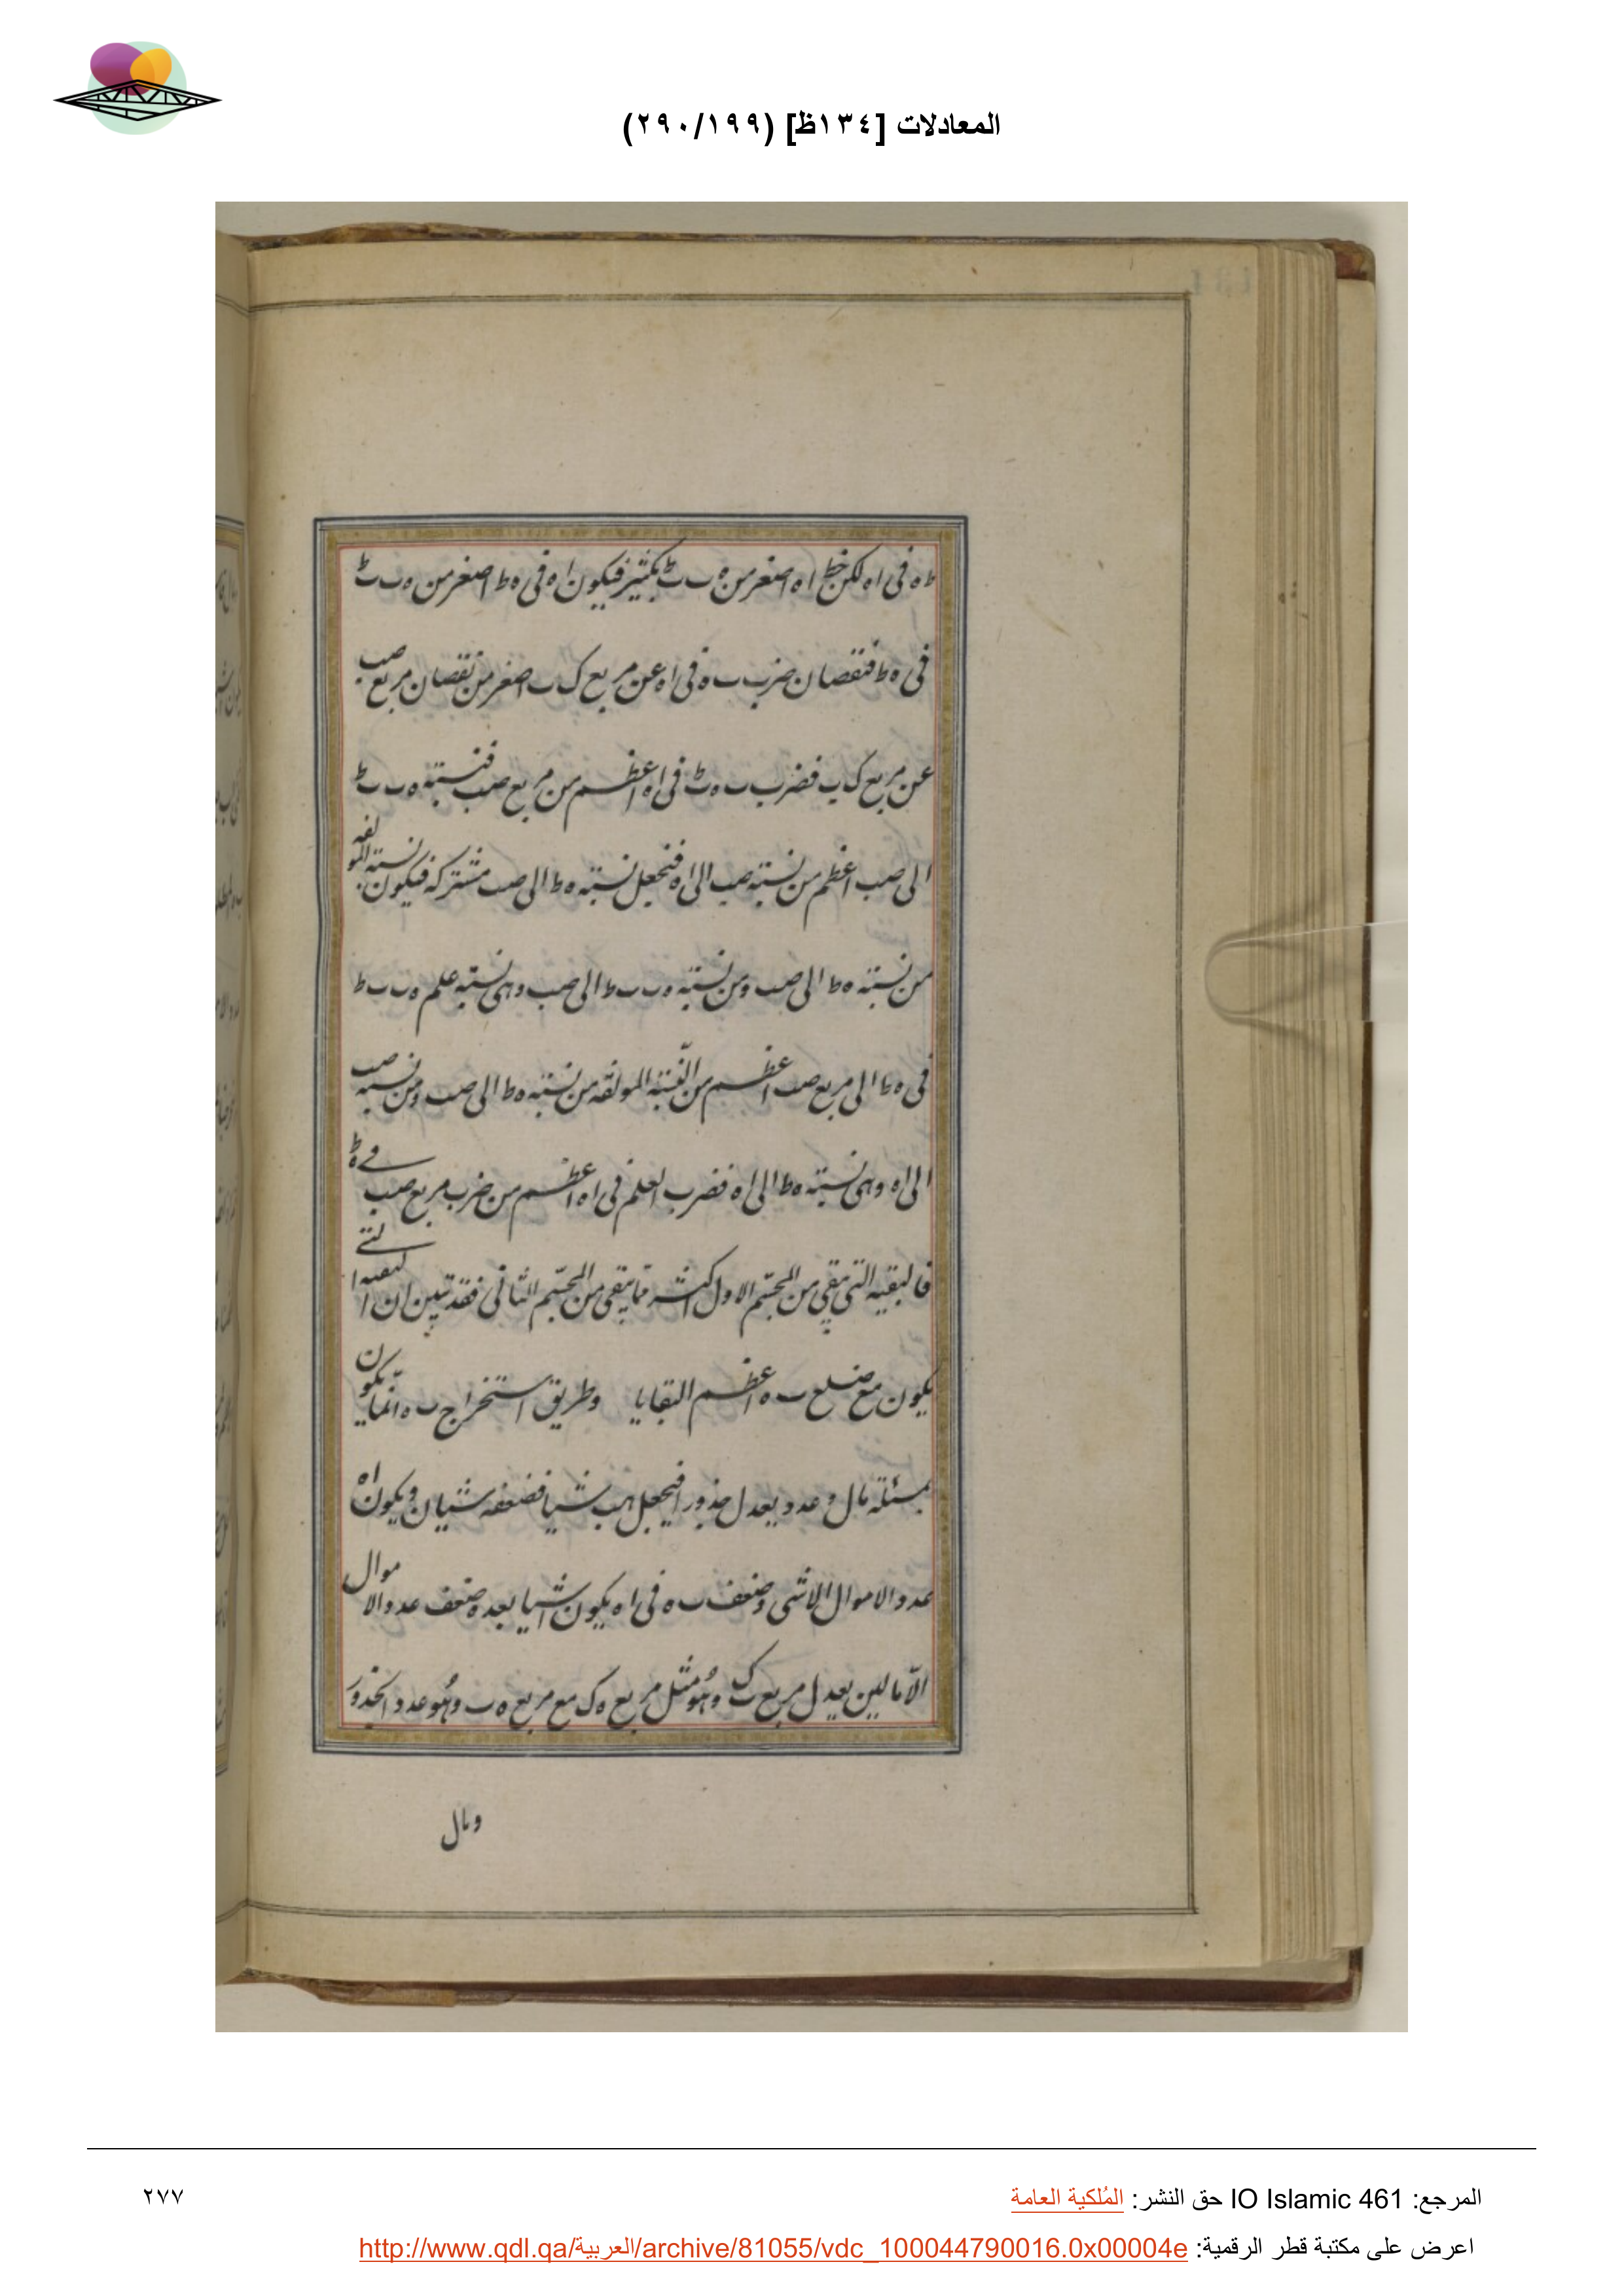 المعادلات [١٣٤ظ] (٢٩٠/١٩٩)
ط ه فى اه لكن خط اه اصغر من ه ب ب ط بكثير فيكون اه فى ه ط اصغر من ه ب ب ط
فى ه ط فنقصان ضرب ب ه فى اه عن مربع ك ب اصغر من نقصان مربع صب
عن مربع ك ب فضرب ب ه ط فى اه اعظم من مربع صب فنسبته ه ب ب ط
الى صب اعظم من نسبته صب الى اه فنجعل نسبته ه ط الى صب مشتركه فيكون نسبته المولفه
من نسبته ه ط الى صب ومن نسبته ه ب ب ط الى صب وهى نسبته علم ه ب ب ط
فى ه ط الى مربع صب اعظم من النسبته المولفه من نسبته ه ط الى صب ومن نسبه صب
الى اه وهى نسبته ه ط الى اه فضرب العلم فى اه اعظم من ضرب مربع صب فے ه ط
فالبقيه التى تبقى من المجسّم الاول اكثر مما يبقى من المجسّم الثانى فقد تبين ان البقيه التے
يكون مع ضلع ب ه اعظم البقايا وطريق استخراج ب ه انّما يكون
بمسئلة مال وعدد يعدل جذورا فيجعل هب شيا فضعفه شيان ويكون اه
عدد الاموال الا شى وضعف ب ه فى اه يكون اشيا بعده ضعف عدد الاموال
الّا مالين يعدل مربع ب ك وهُو مثل مربع ه ك مع مربع ه ب وهُو عدد الجذور
ومال
المرجع: IO Islamic 461 حق النشر: المُلكية العامة
٢٧٧
اعرض على مكتبة قطر الرقمية: http://www.qdl.qa/العربية/archive/81055/vdc_100044790016.0x00004e